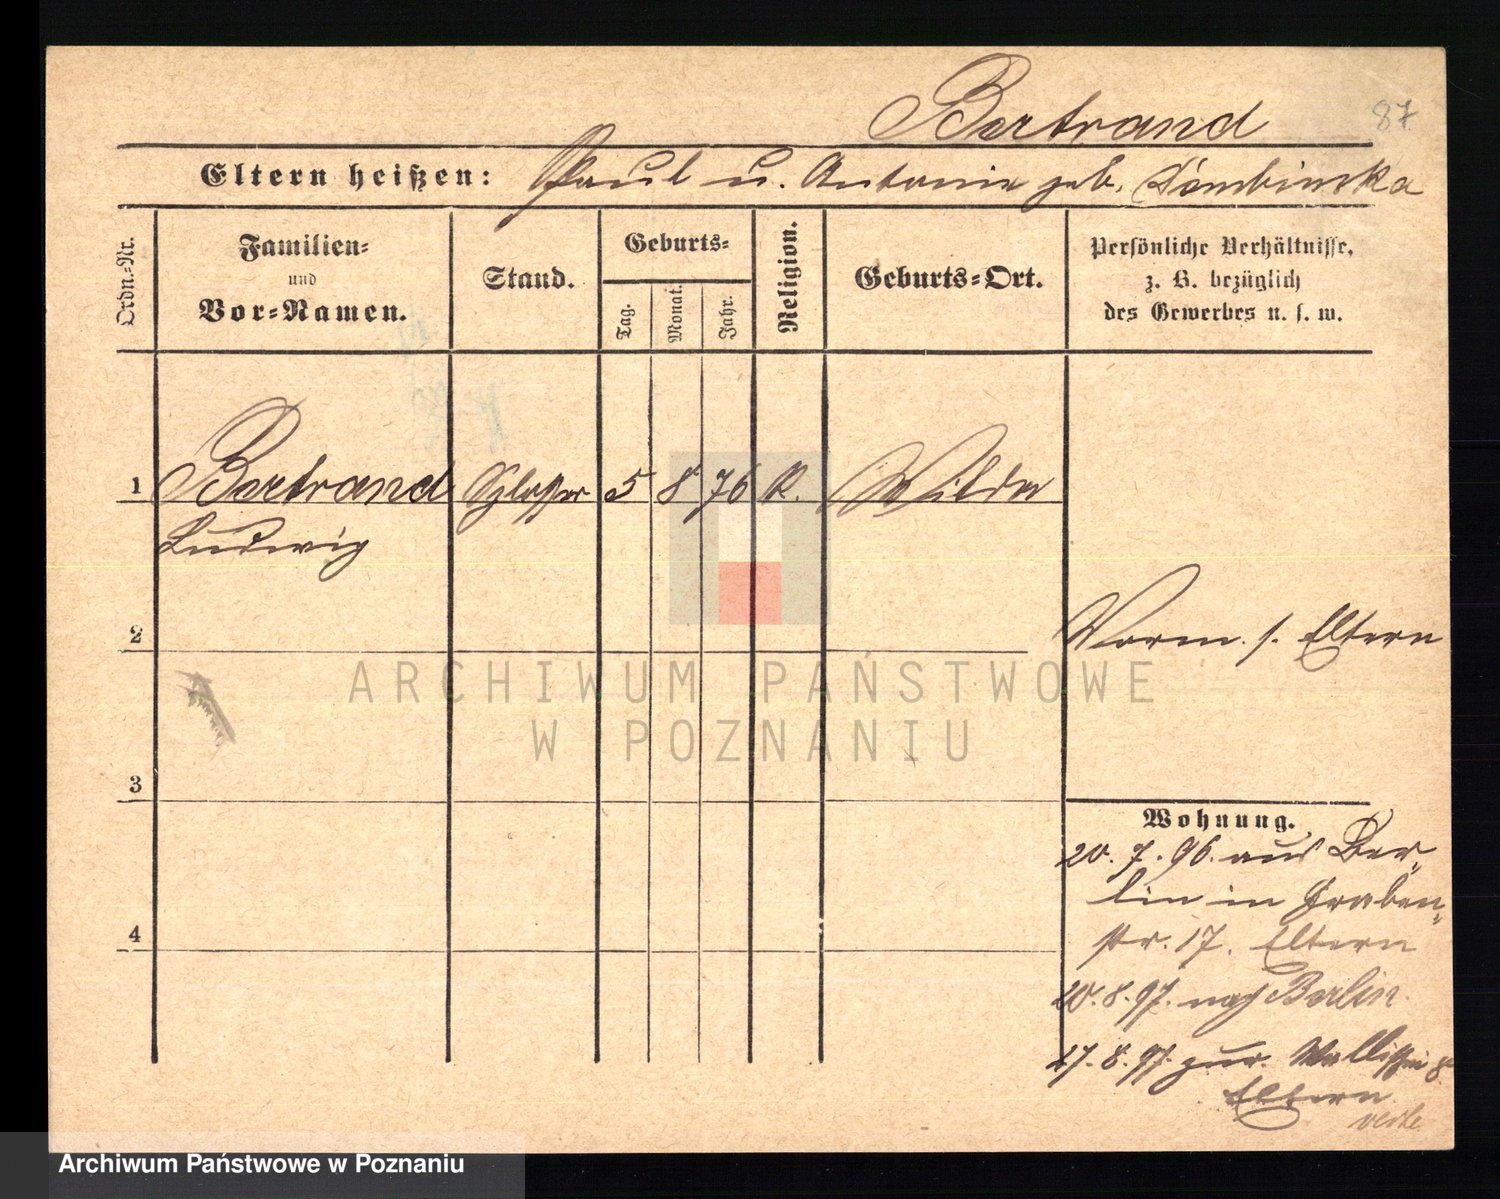 Bertrand 87
Eltern heißen: Paul u. Antonie geb. Dembinska
Ordn.-Nr.
Familien-
und
Vor-Namen.
Stand.
Geburts-
Tag.
Monat.
Jahr.
Religion.
Geburts-Ort.
Persönliche Verhältnisse,
z. B. bezüglich
des Gewerbes u. s. w.
1 Bertrand Schlosser 5 8 76 K. Wilda
Ludwig
2
Vorm. s. Eltern
3
4
Wohnung.
20.7.96. aus Ber-
lin in Graben-
str. 17. Eltern
20.8.97. nach Berlin.
27.8.97. zur. Wallischei 8
Eltern
ARCHIWUM PAŃSTWOWE
W POZNANIU
Archiwum Państwowe w Poznaniu